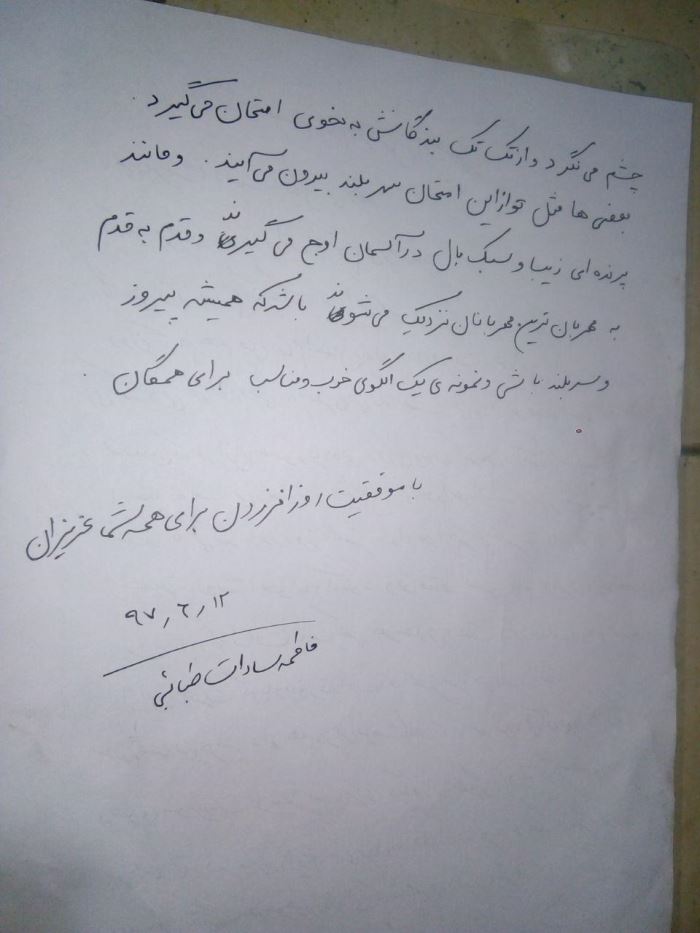 چشم می نگرد و از تک تک بندگانش به نحوی امتحان می گیرد.
بعضی ها مثل تو از این امتحان سربلند بیرون می آیند. و مانند
پرنده ای زیبا و سبک بال در آسمان اوج می گیرند و قدم به قدم
به مهربان ترین مهربانان نزدیک می شوند باشد که همیشه پیروز
و سربلند باشی و نمونه ی یک الگوی خوب و مناسب برای همگان.
با موفقیت روز افزردن برای همه شما عزیزان
۹۷٫۶٫۱۲
فاطمه سادات طبائی